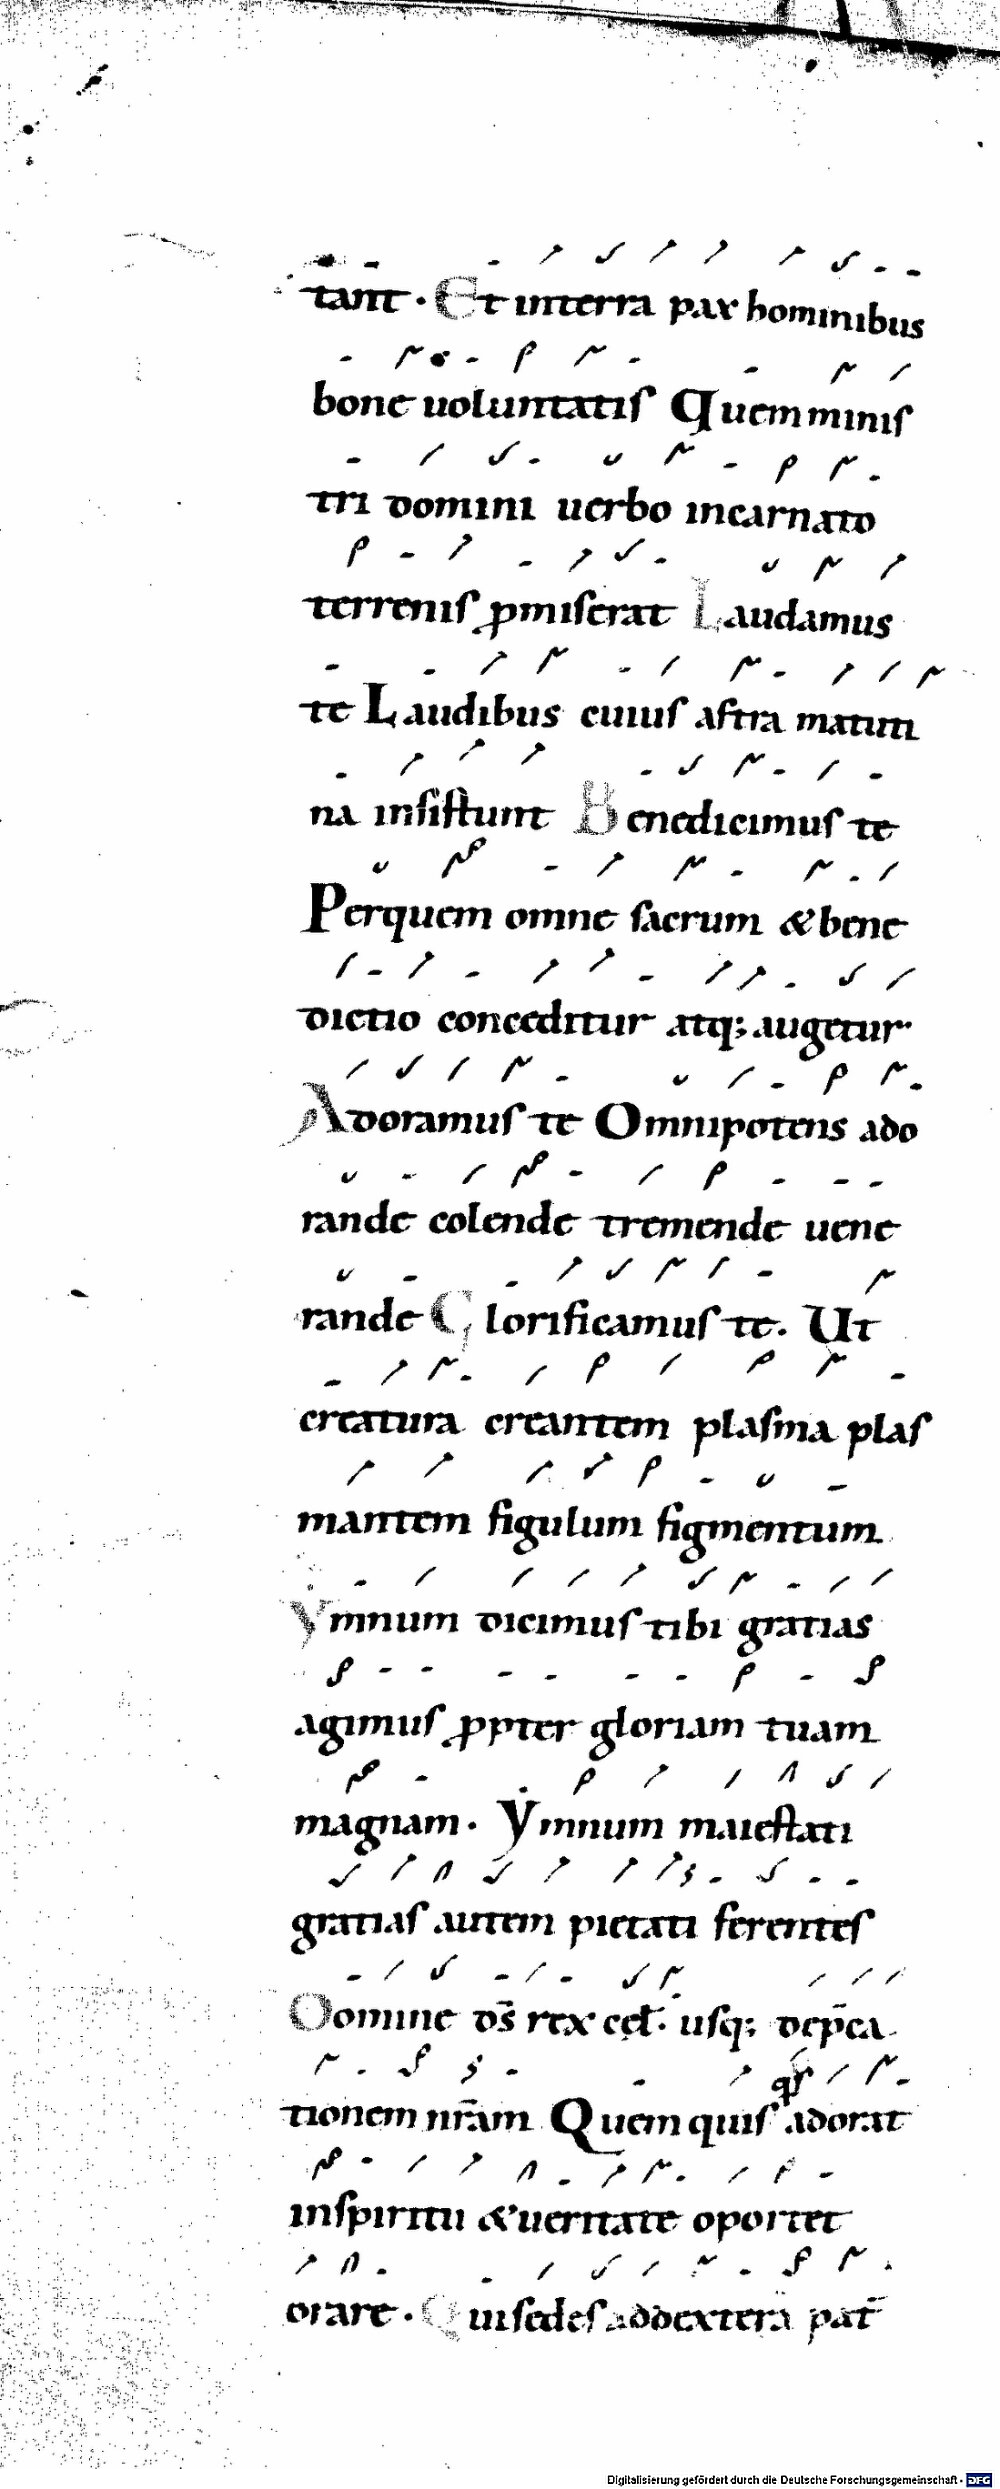 tant. Et interra pax hominibus
bone uoluntatis Quem minis
tri domini uerbo incarnato
terrenis ꝓmiserat Laudamus
te Laudibus cuius astra matuti
na insistunt Benedicimus te
Perquem omne sacrum & bene
dictio conceditur atq; augetur
Adoramus te Omnipotens ado
rande colende tremende uene
rande Glorificamus te. Ut
creatura creantem plasma plas
mantem figulum figmentum
Ymnum dicimus tibi gratias
agimus ꝓpter gloriam tuam
magnam. Ẏmnum maiestati
gratias autem pietati ferentes
Domine d̄s rex cęl. usq; dep̄ca
tionem nr̄am Quem quis adorat
inspiritu & ueritate oportet
orare. Qui sedes ad dexterā pat̄
Digitalisierung gefördert durch die Deutsche Forschungsgemeinschaft - DFG